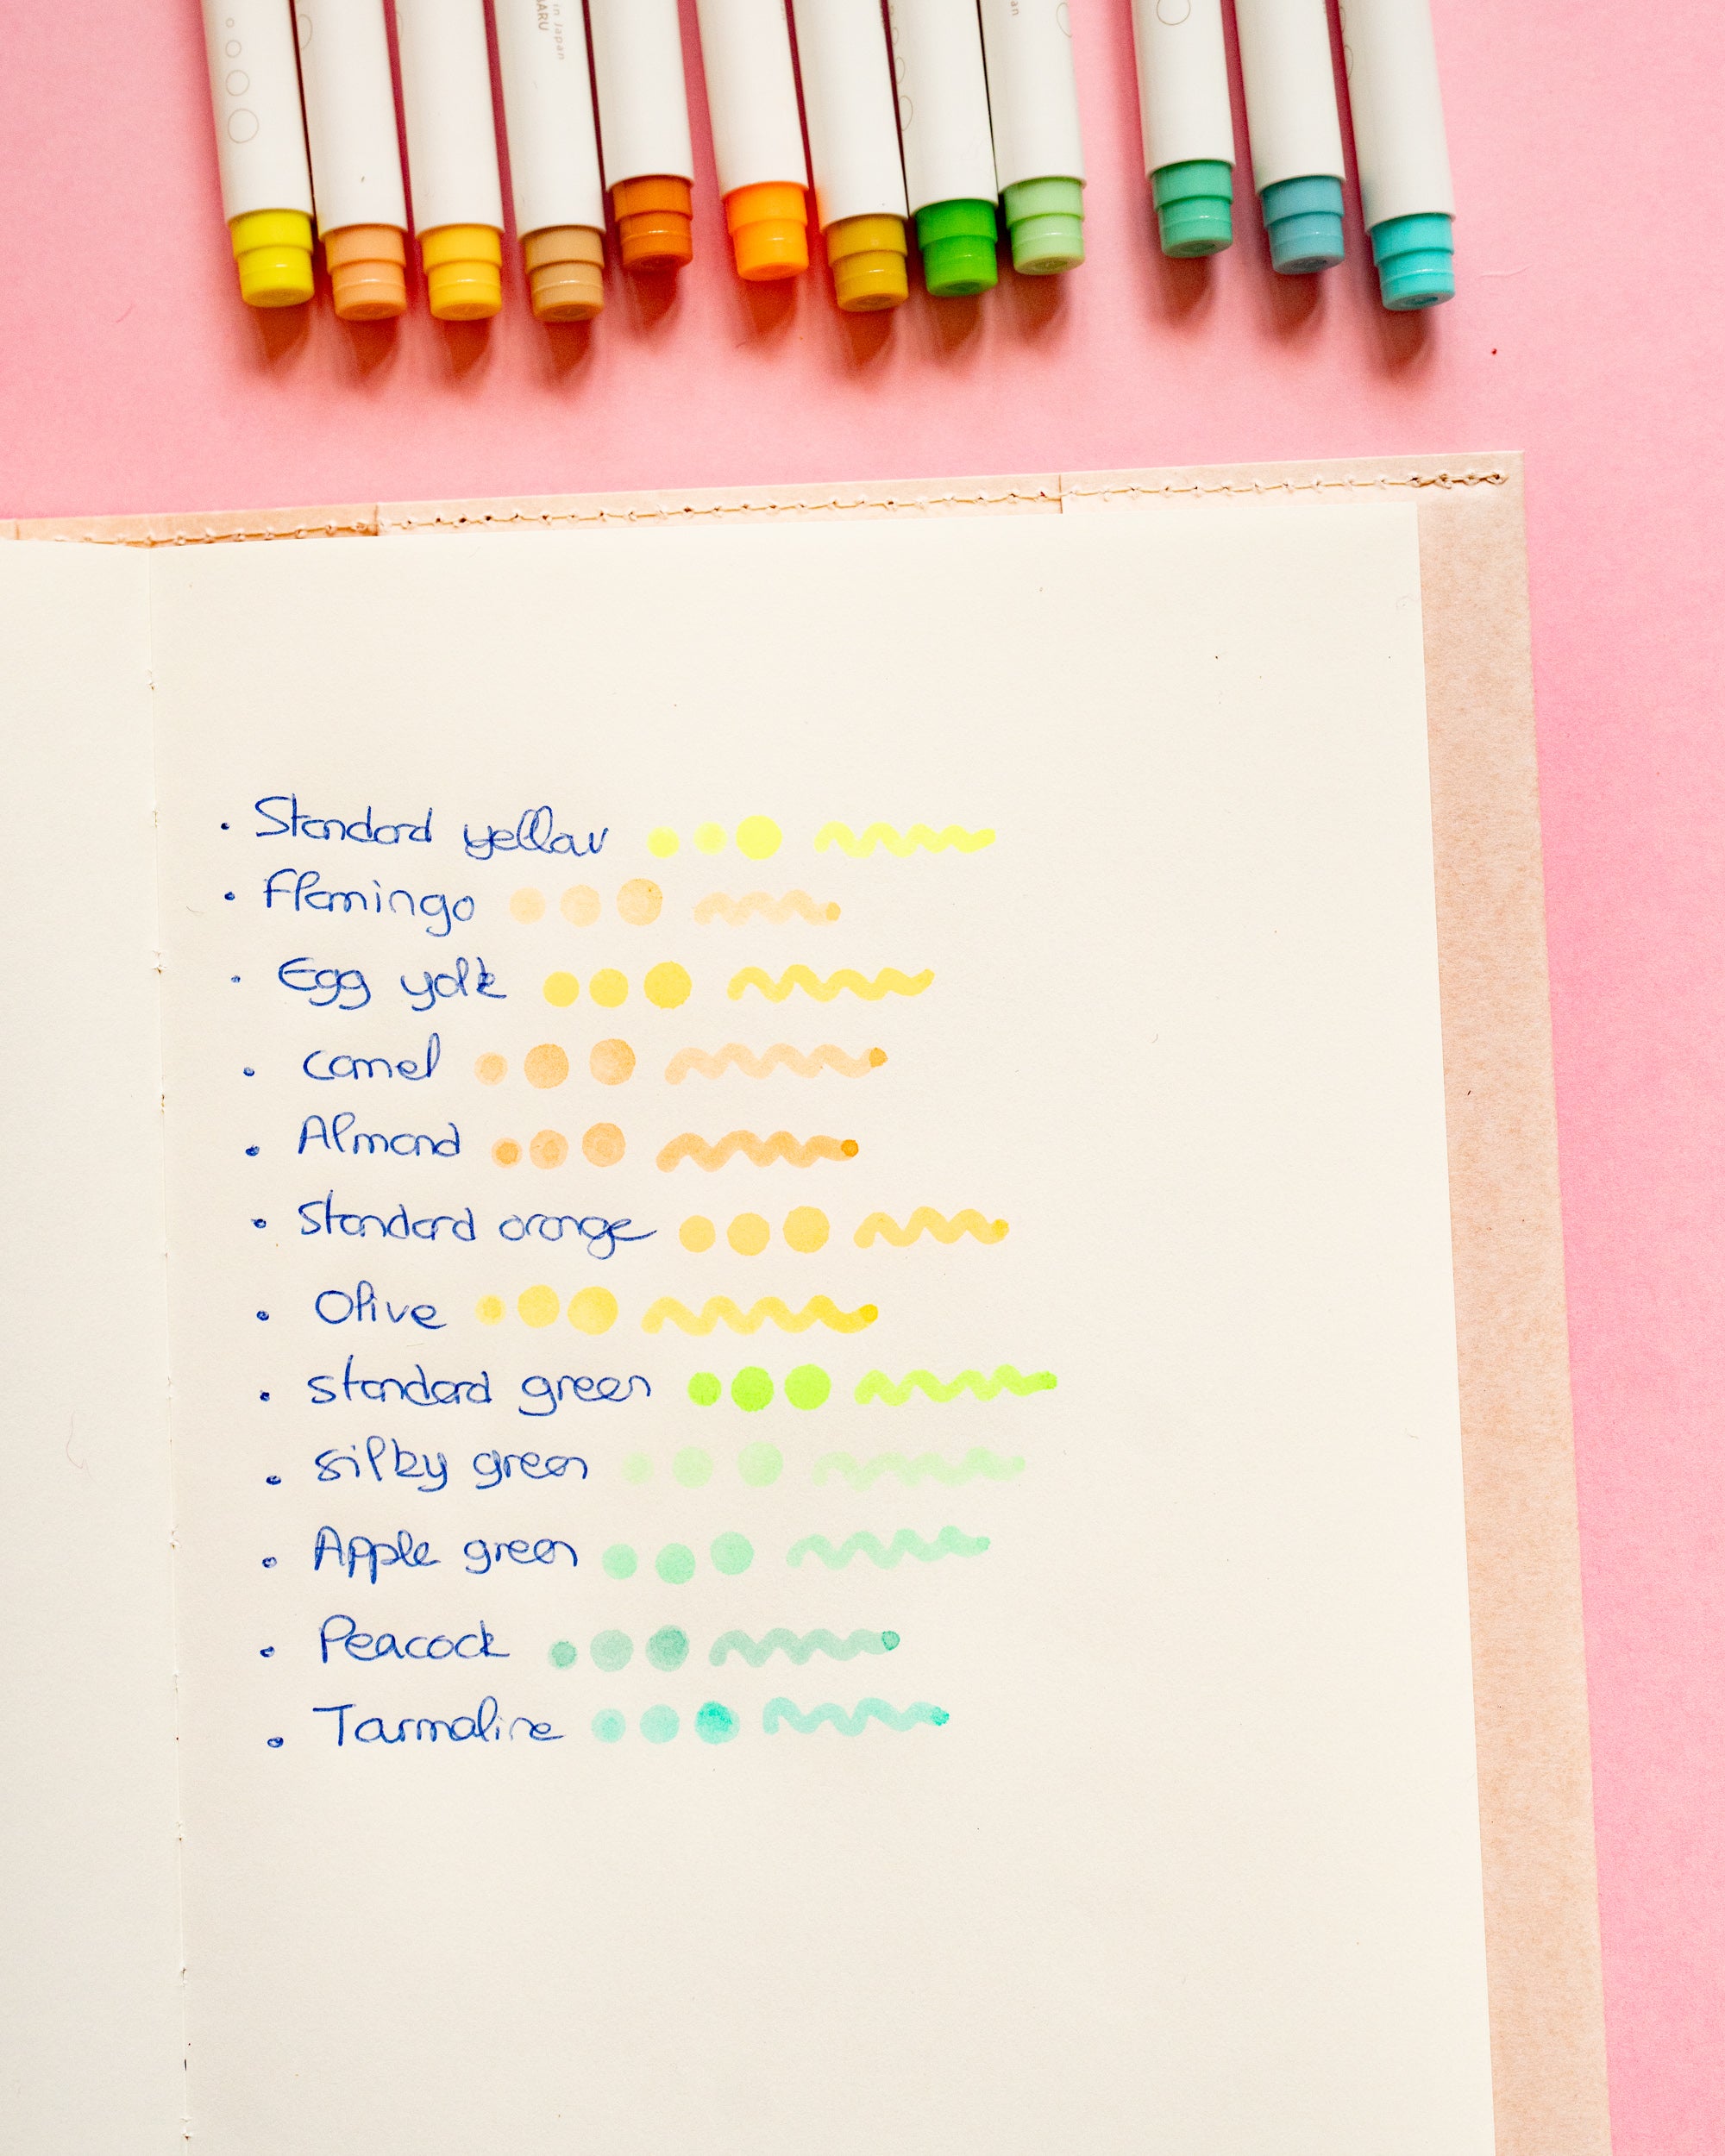 in Japan
ARU
an
• Standard yellow
• Flamingo
• Egg yolk
• Camel
• Almond
• Standard orange
• Olive
• standard green
• silky green
• Apple green
• Peacock
• Tarmaline